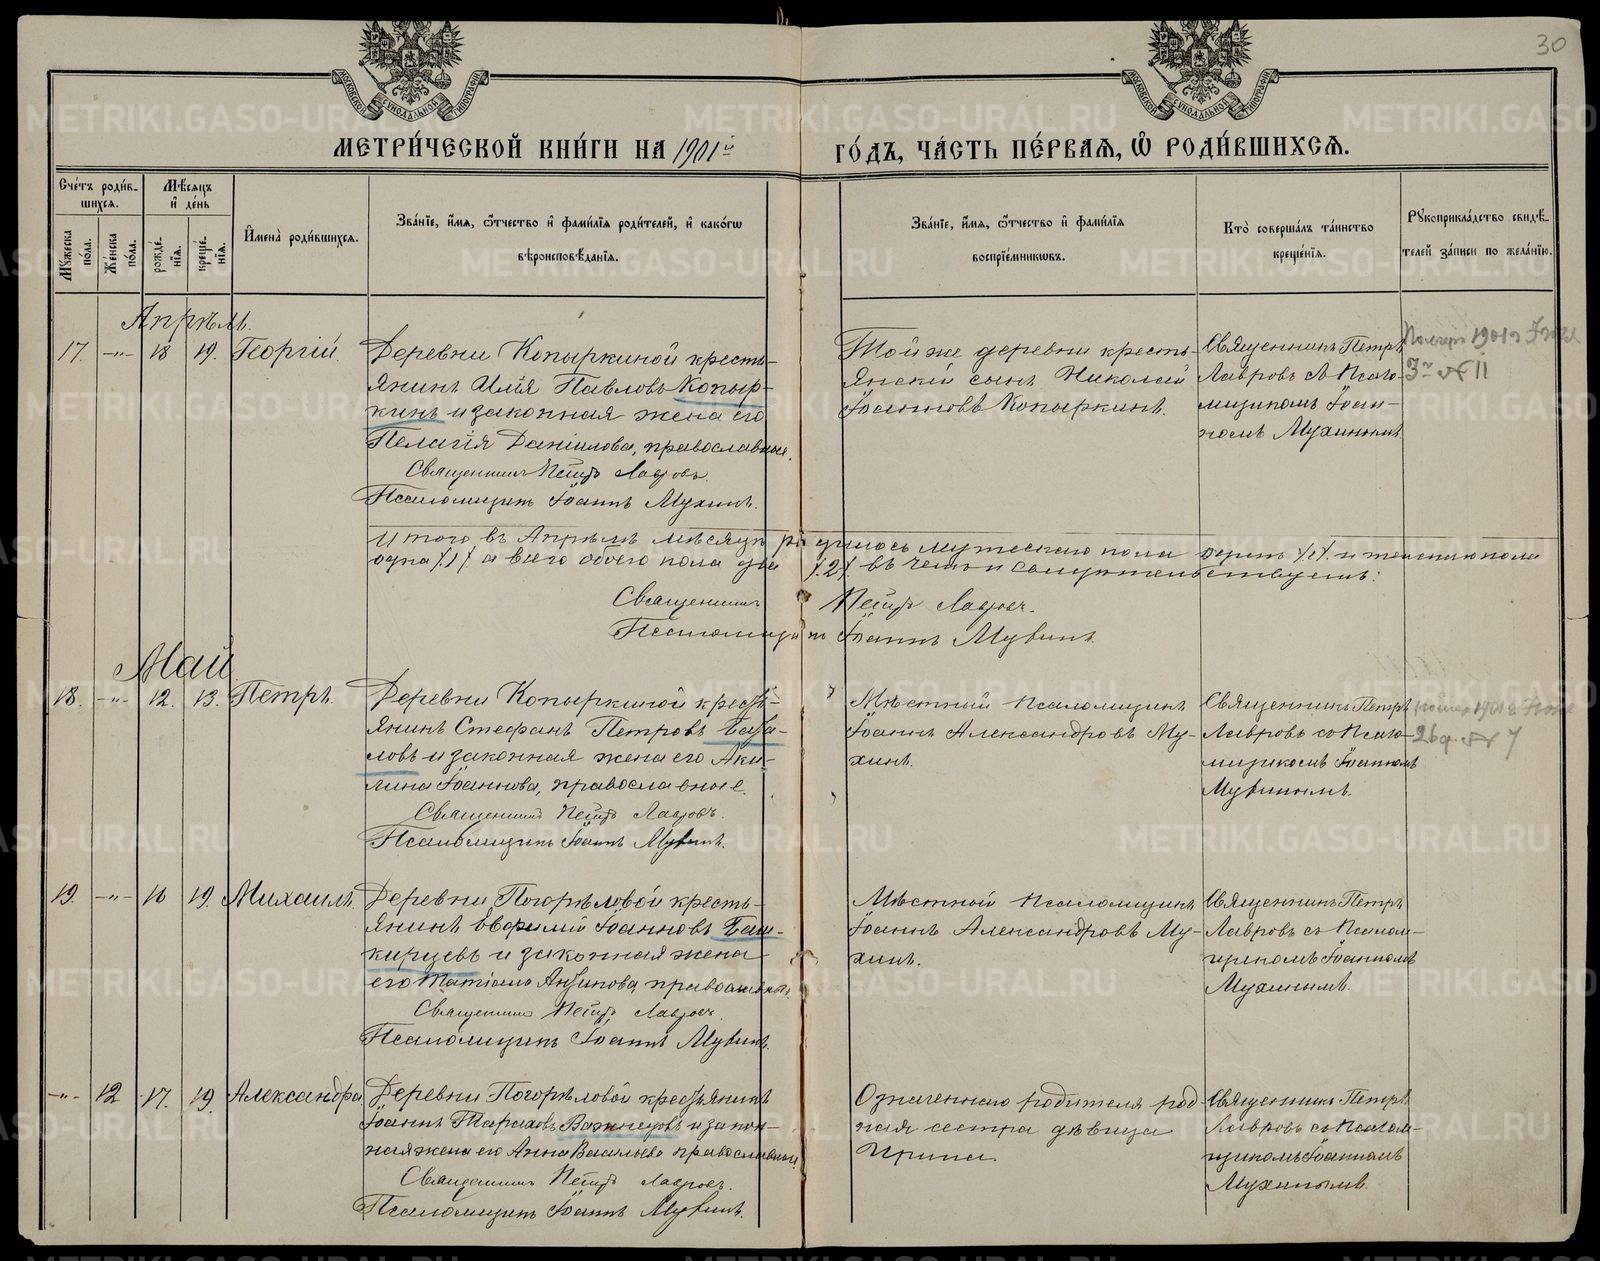 30
МОСКОВСКОЙ СѴНОДАЛЬНОЙ ТИПОГРАФІИ
МОСКОВСКОЙ СѴНОДАЛЬНОЙ ТИПОГРАФІИ
МЕТРИ́ЧЕСКОЙ КНИ́ГИ НА 1901й ГО́ДЪ, ЧА́СТЬ ПЕ́РВАѦ, Ѽ РОДИ́ВШИХСѦ.
Сче́тъ роди́вшихсѧ.
Мѣ́сѧцъ и҆ де́нь
Мꙋ́жеска по́ла.
Же́нска по́ла.
рожде́нїѧ.
креще́нїѧ.
И҆мена̀ роди́вшихсѧ.
Зва́нїе, и҆́мѧ, ѻ҆́тчество и҆ фами́лїѧ роди́телей, и҆ како́гѡ
вѣроисповѣ́данїѧ.
Зва́нїе, и҆́мѧ, ѻ҆́тчество и҆ фами́лїѧ
воспрїе́мникѡвъ.
Кто̀ соверша́лъ та́инство
креще́нїѧ.
Рꙋкоприкла́дство свидѣ́-
телей за́писи по жела́нїю.
Апрѣль.
17. -"- 18 19. Георгій.
Деревни Копыркиной кресть-
янинъ Илія Павловъ Копыр-
кинъ и законная жена его
Пелагія Даніилова, православные.
Священникъ Петръ Лавровъ.
Псаломщикъ Іоаннъ Мухинъ.
Той же деревни кресть-
янскій сынъ Николай
Іоанновъ Копыркинъ.
Священникъ Петръ
Лавровъ съ Псало-
мщикомъ Іоан-
номъ Мухинымъ
1901г
№ 11
Итого въ Апрѣлѣ мѣсяцѣ родилось мужескаго пола одинъ /1/ и женскаго пола
одна /1/ а всего обоего пола два /2/ въ чемъ и свидѣтельствуемъ:
Священникъ Петръ Лавровъ.
Псаломщикъ Іоаннъ Мухинъ.
Май
18. -"- 12. 13. Петръ.
Деревни Копыркиной кресть-
янинъ Стефанъ Петровъ
ловъ и законная жена его Аки-
лина Іоаннова, православные.
Священникъ Петръ Лавровъ.
Псаломщикъ Іоаннъ Мухинъ.
Мѣстный псаломщикъ
Іоаннъ Александровъ Му-
хинъ.
Священникъ Петръ
Лавровъ со Псало-
мщикомъ Іоанномъ
Мухинымъ.
1901г
№ 7
19. -"- 16 19. Михаилъ.
Деревни Погорѣловой кресть-
янинъ Евфимій Іоанновъ Баш-
кирцевъ и законная жена
его Татіана православные.
Священникъ Петръ Лавровъ.
Псаломщикъ Іоаннъ Мухинъ.
Мѣстной псаломщикъ
Іоаннъ Александровъ Му-
хинъ.
Священникъ Петръ
Лавровъ съ Псалом-
щикомъ Іоанномъ
Мухинымъ.
-"- 12 17. 19. Александра
Деревни Погорѣловой крестьянинъ
Іоаннъ Тараховъ и закон-
ная жена его Анна Васильева православные
Священникъ Петръ Лавровъ.
Псаломщикъ Іоаннъ Мухинъ.
Означеннаго родителя род-
ная сестра дѣвица
Ирина.
Священникъ Петръ
Лавровъ съ Псалом-
щикомъ Іоанномъ
Мухинымъ.
METRIKI.GASO-URAL.RU